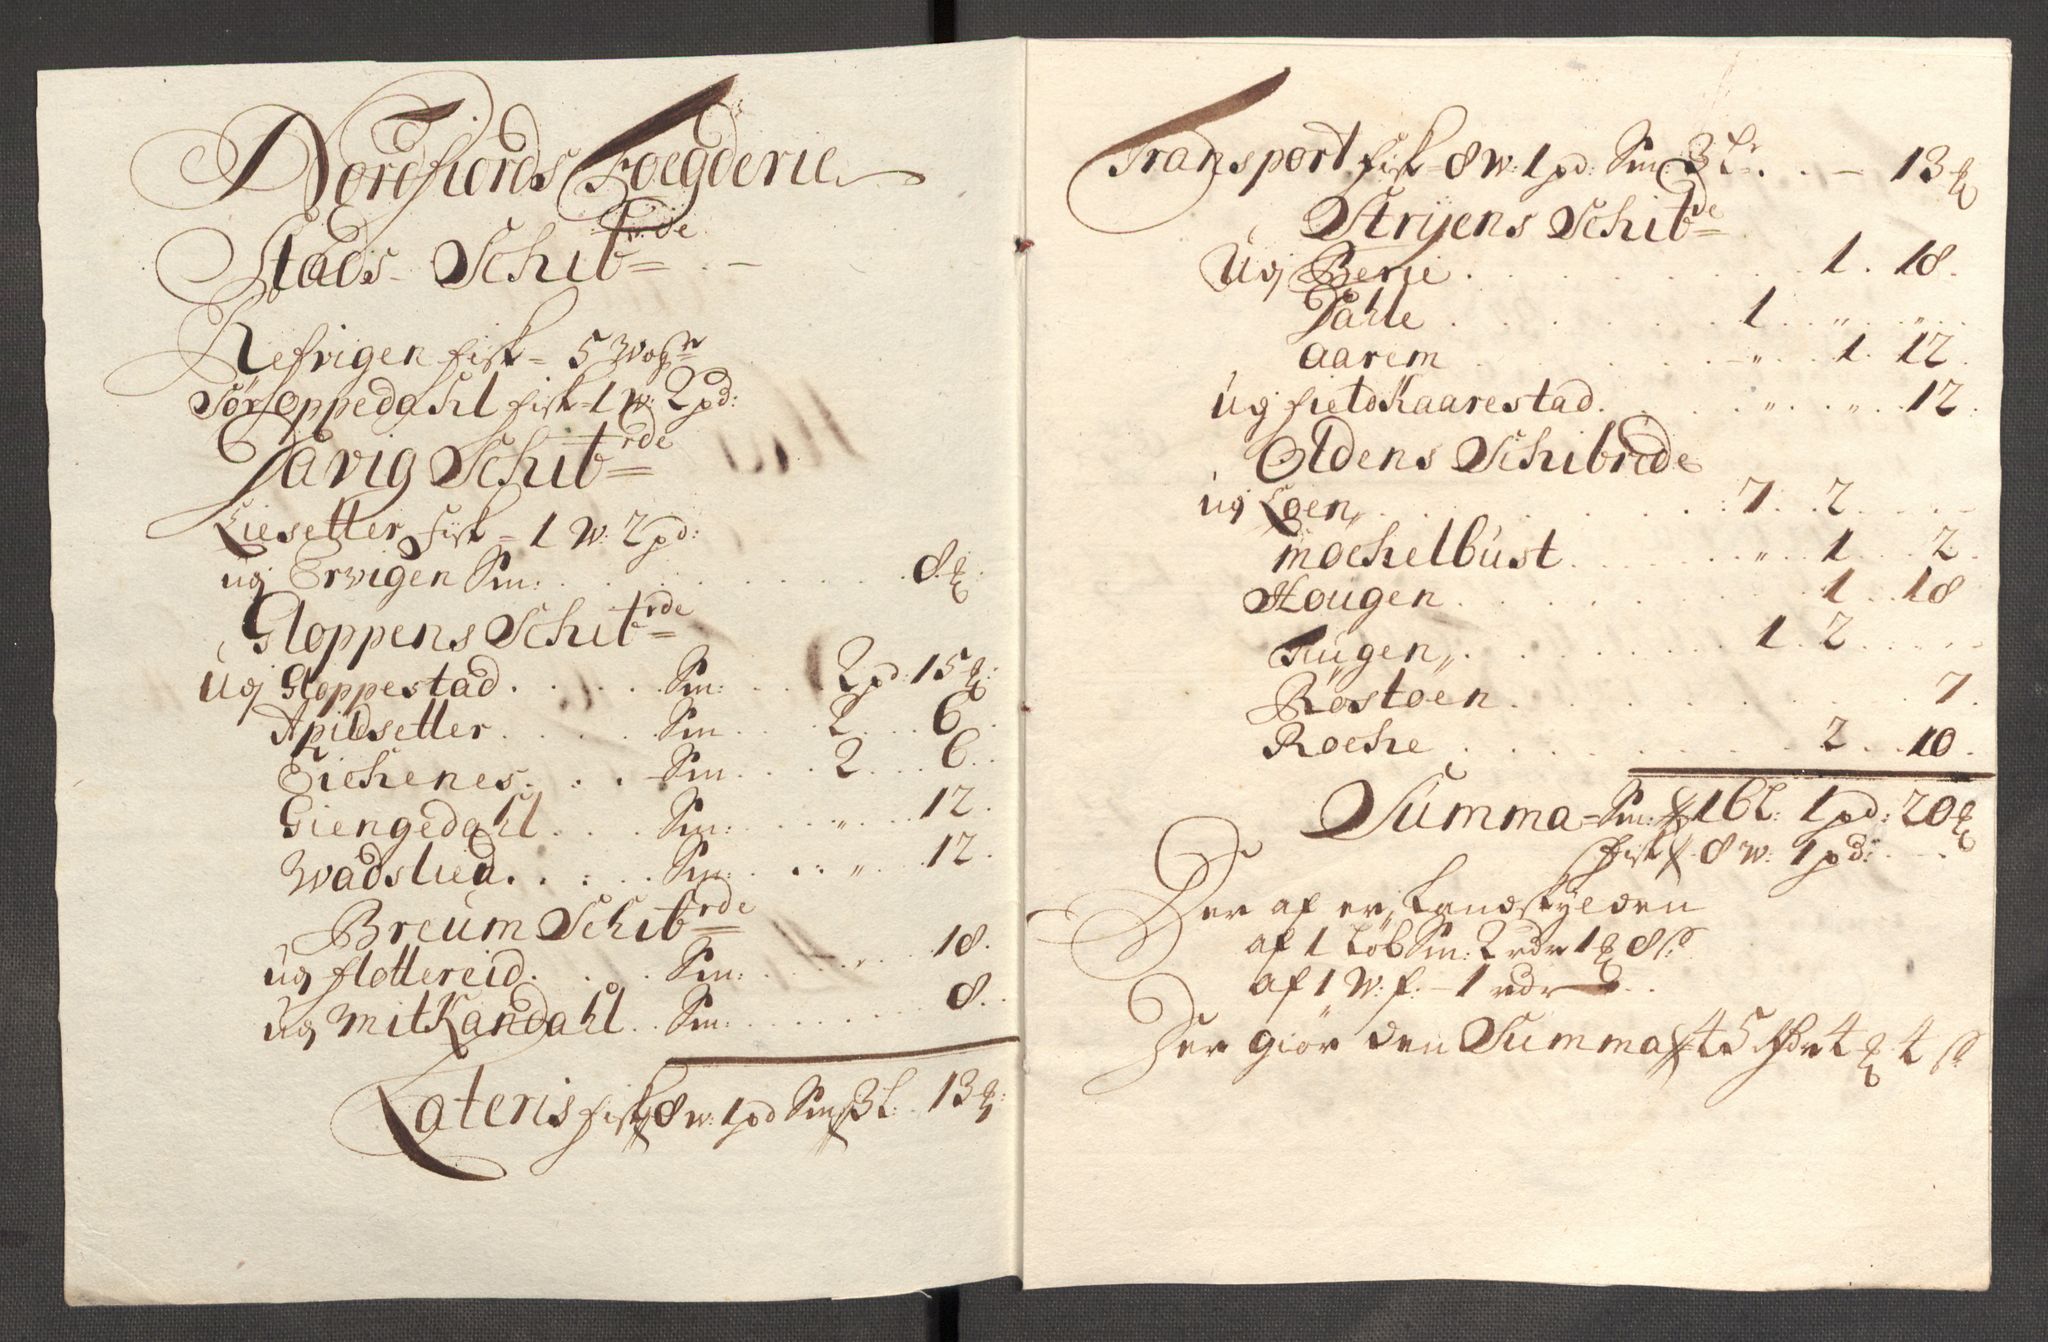 Nordfiords Foegderie
Stads Schibrde
Refvigen fisk = 5 Woger
Sør oppedahl fisk = 1 w: 2 pd:
Javig Schibrde
Liesetter fisk = 1 W: 2 pd:
ug Ervigen Sm: . . . 8 ℔
Gloppens Schibrde
Ug Gloppestad . . . Sm: . . . 2 pd: 15 ℔:
Apildsetter . . . Sm . . . 2 . . . 6 .
Eichenes . . . Sm . . . 2 . . . 6 .
Giengedahl . . . Sm: . . . „ . 12 .
Wadslied . . . Sm: . . . „ . 12 .
Breum Schibrde
ug flottereid . . . Sm: . . . 18 .
ug Mitkandahl . . Sm: . . . 8 .
Lateris fisk 8 w: 1 pd Sm 3 L: . 13 ℔:
Transport fisk = 8 w: 1 pd: Sm: 3 Lr . . . 13 ℔
Stryens Schibde
Ug Berie . . . 1 . 18 .
Jahle . . . 1 . „ . „ .
Aarem . . . „ . 1 . 12 .
Ug field Kaarestad . . . „ . „ . 12 .
Oldens Schibrede
ug Loen „ . . . 7 . 2 . . .
Mochelbust . . . „ . 1 . . 2 .
Hougen . . . 1 . 18
Tiugen „ . . . 1 . 2 . . .
Røstøen . . . 7 .
Roche . . . 2 . . 10 .
Summa = Sm: 16 L: 1 pd: 20 ℔
fisk 8 w: 1 pd: . . .
Der af er Landskylden
af 1 Løb Sm: 2 rdr 1 ℔ 8 s
af 1 W: f: – 1 rdr . .
Der giør den Summa 45 Rdr 4 ℔ 4 s